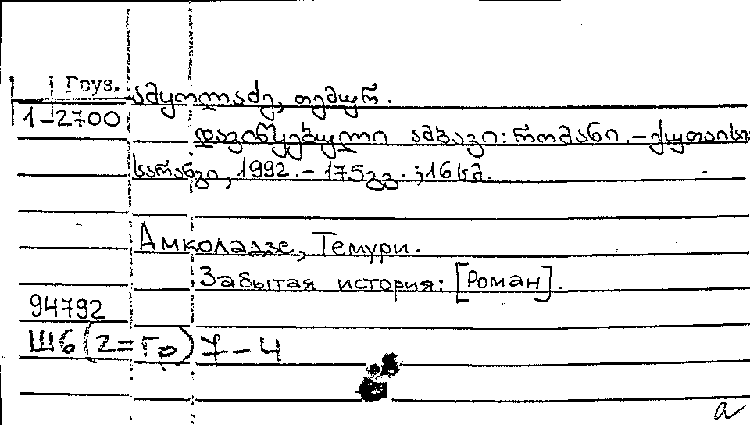 Груз.
ამყოლაძე, თემურ.
1-2700
დავიწყებული ამბავი: რომანი. – ქუთაისი
საჩინო, 1992. – 175გვ.; 16სმ.
Амколадзе, Темури.
Забытая история: [Роман].
94792
Ш6(2=Гр)7-4
а